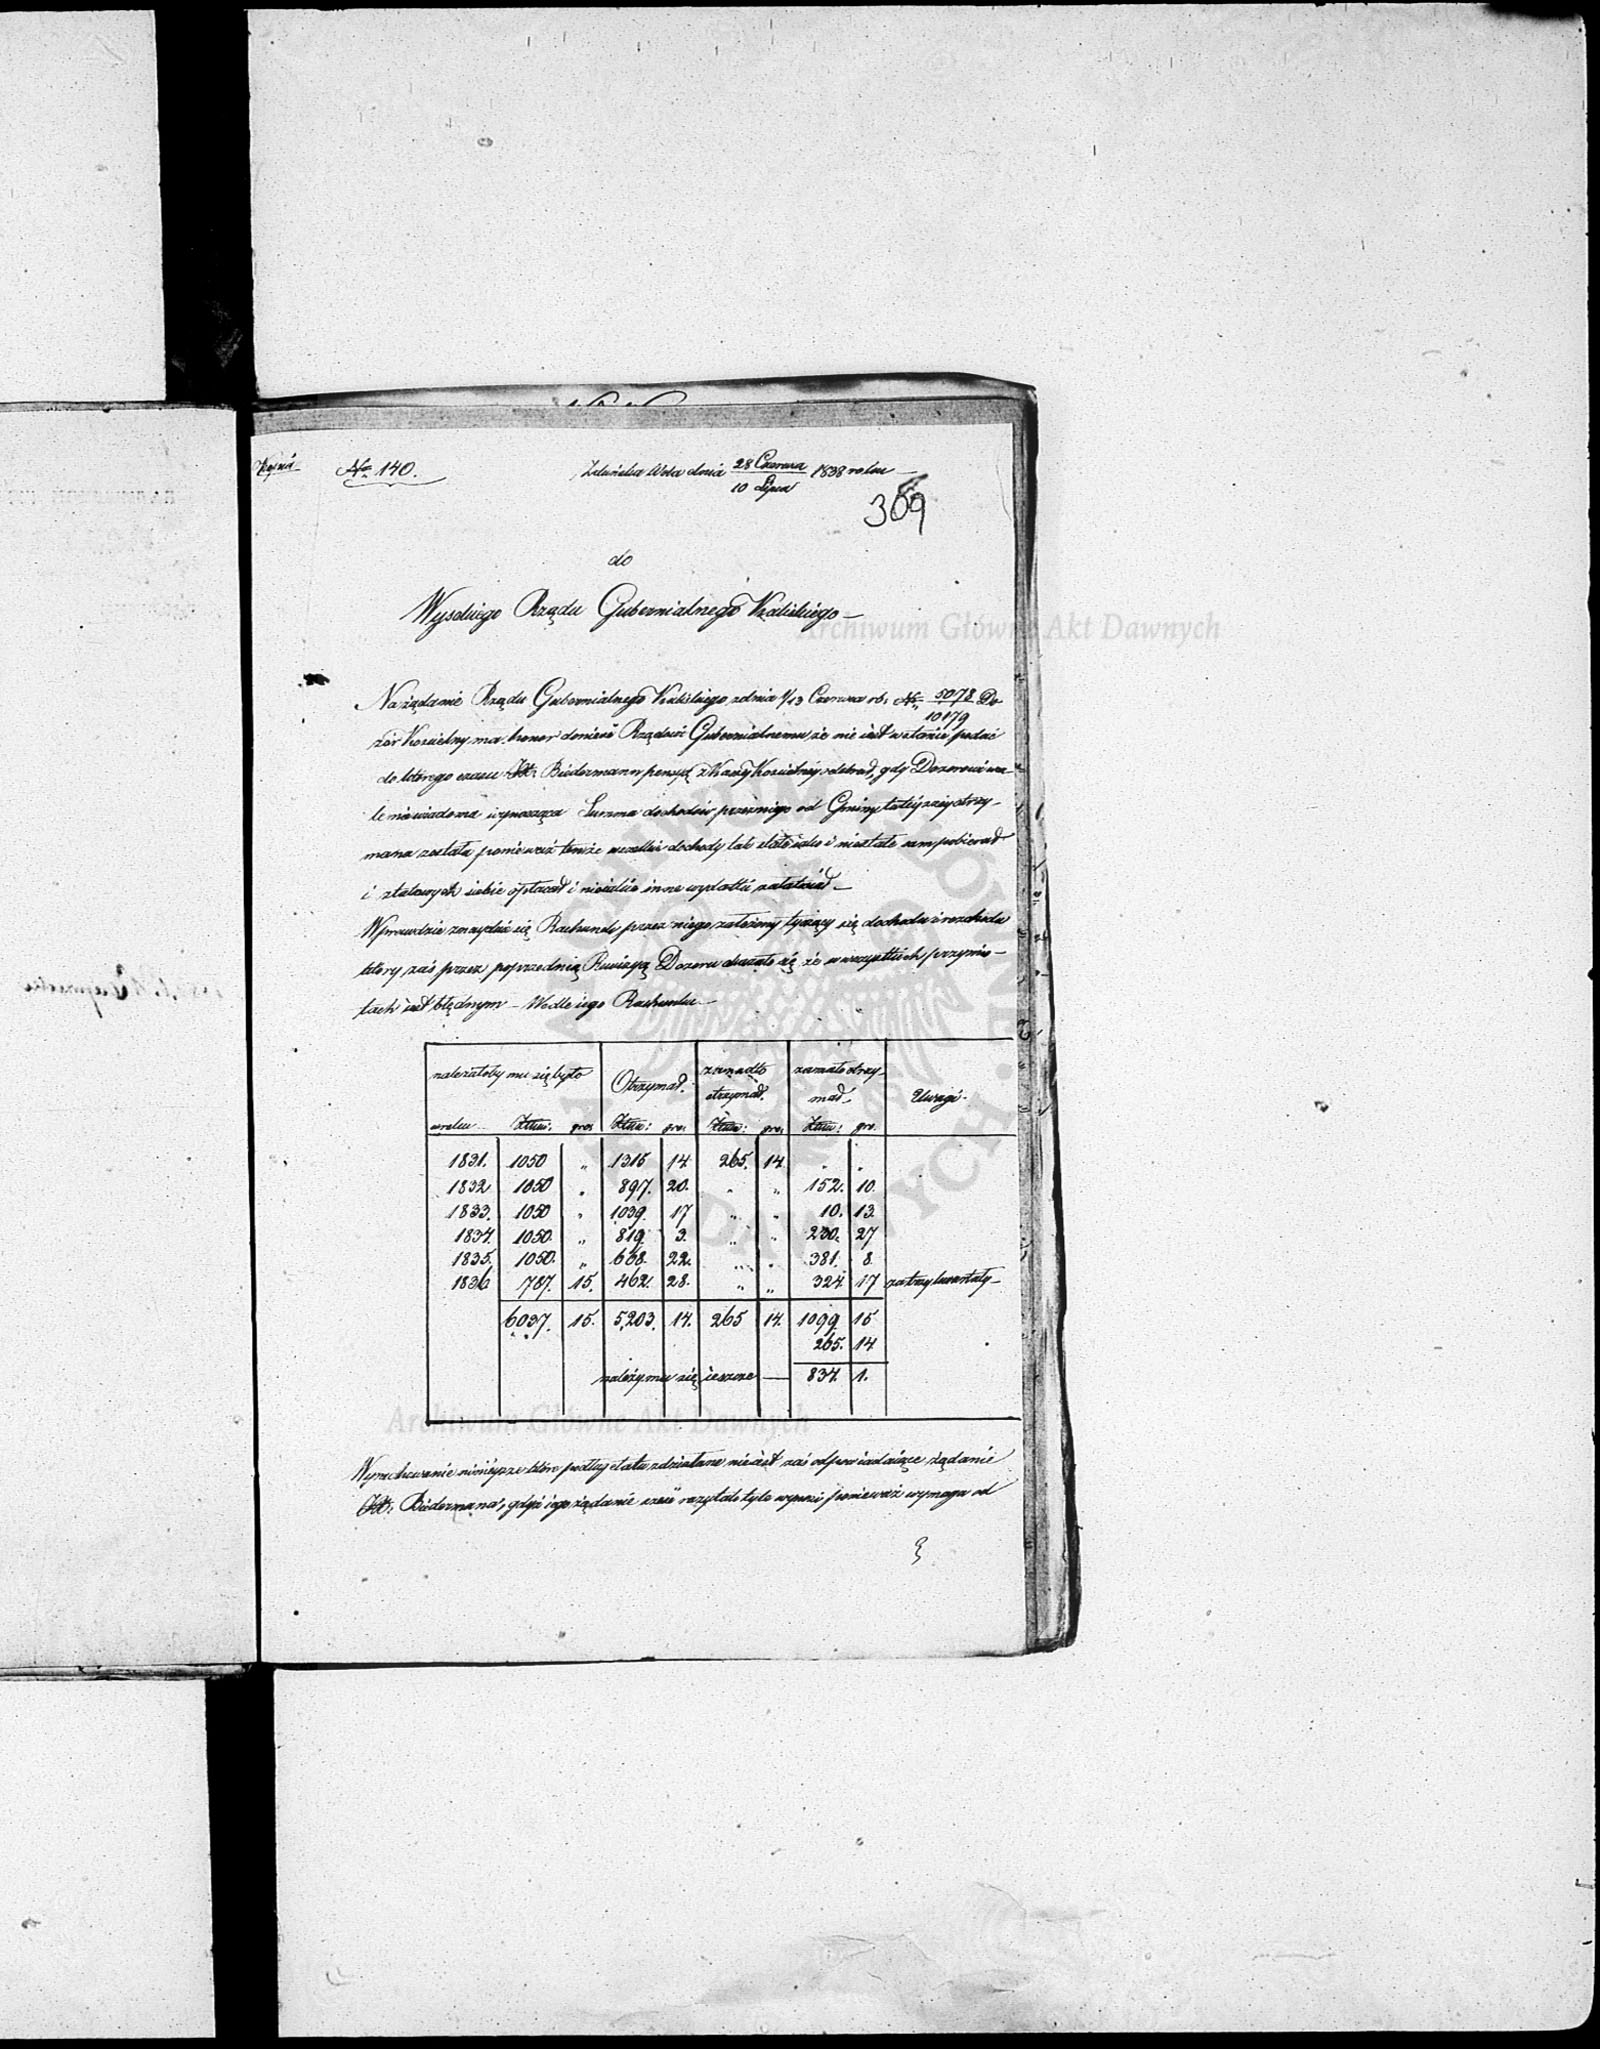 Kopia № 140. Zduńska Wola dnia 28 Czerwca / 10 Lipca 1838 roku
309
do
Wysokiego Rządu Gubernialnego Kaliskiego
Na żądanie Rządu Gubernialnego Kaliskiego zdnia 1/13 Czerwca rb. № 5078/10179 Do-
zór Kościelny ma honor donieść Rządowi Gubernialnemu, że nie iest wstanie podać
do którego czasu Biedermann pensyą z Kassy Kościelney odebrał, gdy Dozorowi wca-
le niewiadoma wynosząca Summa dochodów przezniego od Gminy tuteyszey otrzy-
mana została ponieważ tenże wszelkie dochody tak stałe iako i niestałe sam pobierał
i z takowych siebie opłacał i niektóre inne wydatki załatwiał
Wprawdzie znayduie się Rachunek przez niego założony tyczący się dochodu i rozchodu
który zaś przez poprzednią Rewizyą Dozoru okazało się że w wszystkich przymio-
tach iest błędnym – Wedle iego Rachunku
należałoby mu się było Otrzymał. zanadto otrzymał. zamało otrzy-mał. Uwagi.
wroku Złtw: gro. Złtw: gro. Złtw: gro. Złtw: gro.
1831. 1050 „ 1315 14 265. 14. „ „
1832 1050 „ 897. 20. „ „ 152. 10.
1833. 1050 „ 1039. 17 „ „ 10. 13.
1834. 1050. „ 819. 3. „ „ 230. 27
1835. 1050. „ 668. 22. „ „ 381. 8
1836 787. 15. 462. 28. „ „ 324. 17 za trzy kwartały
6037. 15. 5,203. 14. 265 14. 1099. 15
265. 14
należy mu się ieszcze — 834. 1.
Wyrachowanie ninieysze które podług etatu zdziałane nieiest zaś odpowiadaiące żądanie
Biedermana, gdyż iego żądanie sześć razy tyle wynosi ponieważ wymaga od
Archiwum Główne Akt Dawnych
Archiwum Główne Akt Dawnych